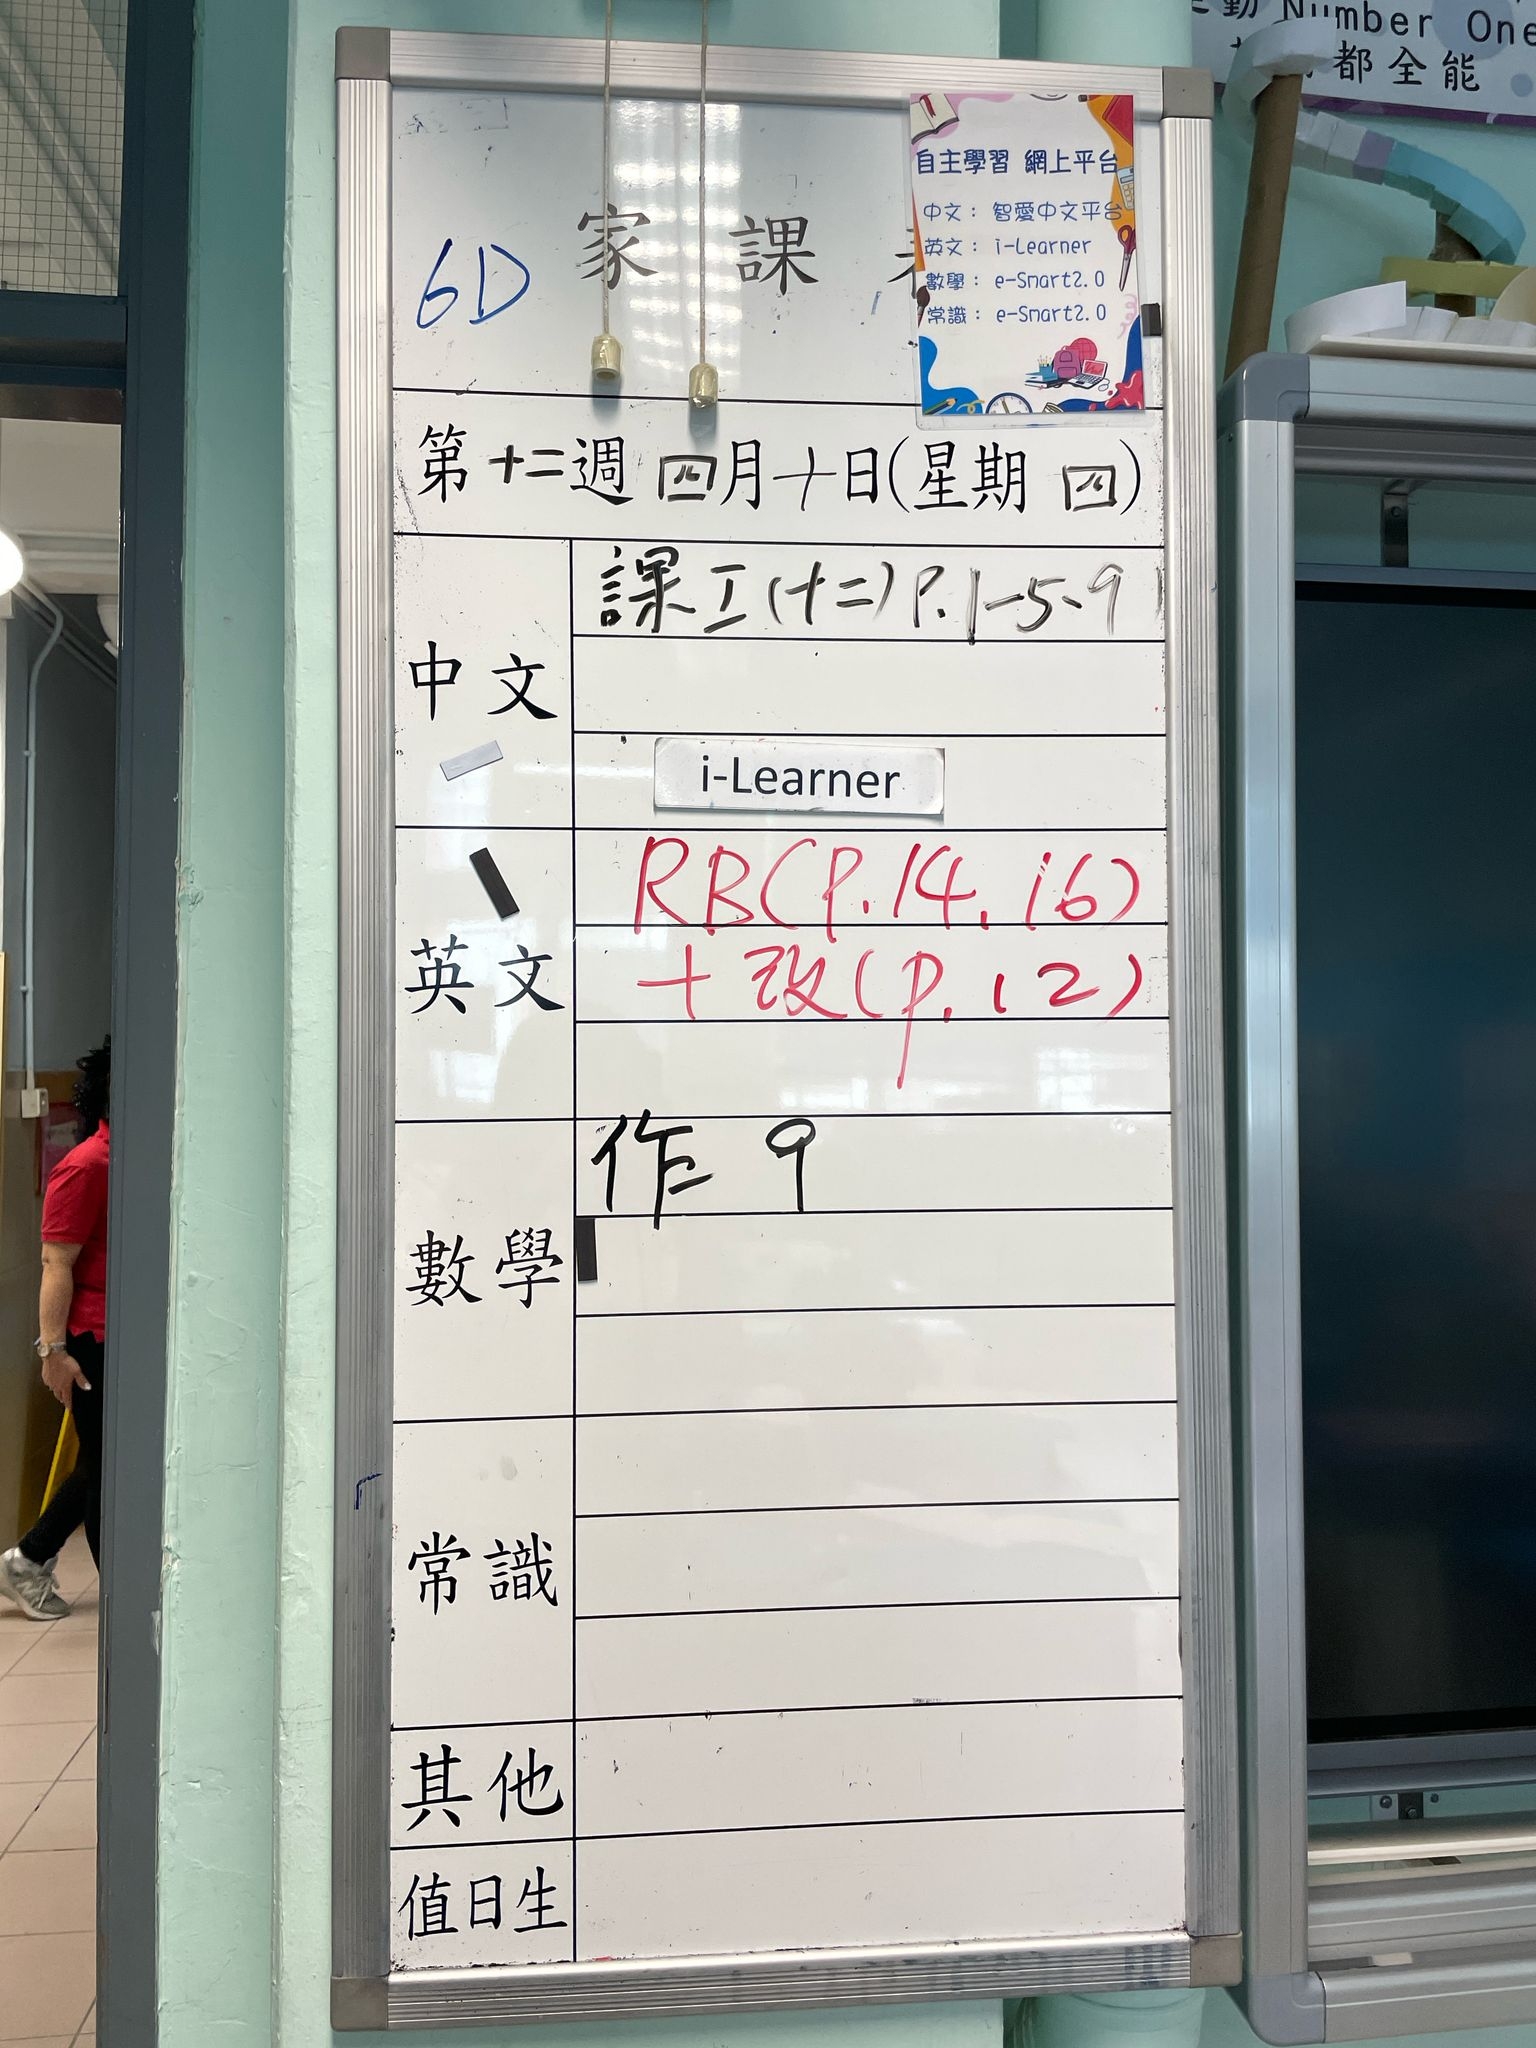 動 Number One
都全能
自主學習 網上平台
中文： 智愛中文平台
英文： i-Learner
數學： e-Smart2.0
常識： e-Smart2.0
家課
6D
第十二週 四月十日(星期 四)
中文
課工(十二)P.1-5、9
i-Learner
英文
RB(P.14, 16)
+改(p.12)
數學
作 9
常識
其他
值日生